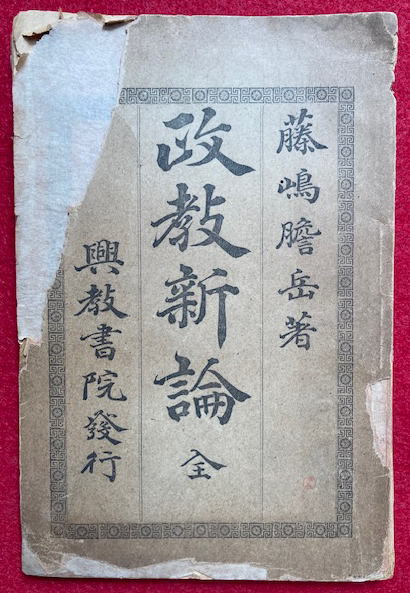 藤嶋膽岳著
政教新論 全
興教書院發行